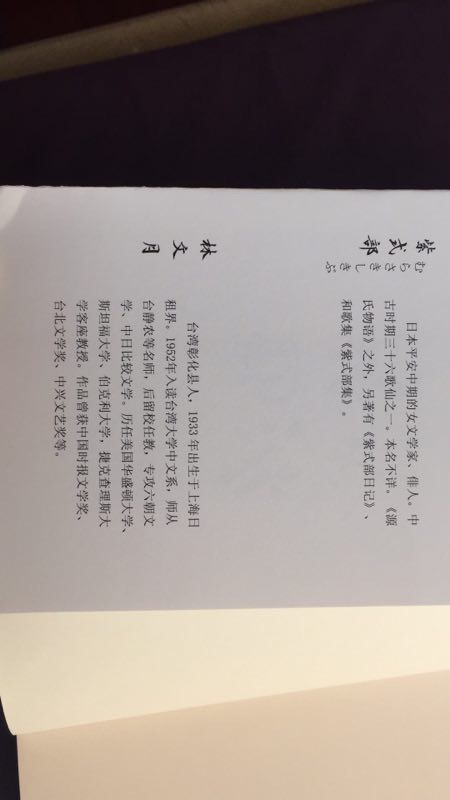 紫式部
むらさきしきぶ
日本平安中期的女文学家、俳人。中
古时期三十六歌仙之一。本名不详。《源
氏物语》之外，另著有《紫式部日记》、
和歌集《紫式部集》。
林文月
台湾彰化县人，1933年出生于上海日
租界。1952年入读台湾大学中文系，师从
台静农等名师，后留校任教，专攻六朝文
学、中日比较文学。历任美国华盛顿大学、
斯坦福大学、伯克利大学，捷克查理斯大
学客座教授。作品曾获中国时报文学奖、
台北文学奖、中兴文艺奖等。